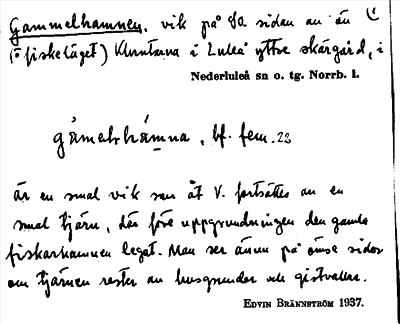 Gammelhamnen, vik på Sö. sidan av ön (i
(o fiskeläget) Kluntarna i Luleå yttre skärgård, i
Nederluleå sn o. tg. Norrb. l.
gåmelshåmna, bf. fem. 23
är en smal vik som åt V. fortsättes av en
smal tjärn, där före uppgrundningen den gamla
fiskarhamnen legat. Man ser ännu på ömse sidor
om tjärnen rester av husgrunder och gistvallar.
EDVIN BRÄNNSTRÖM 1937.